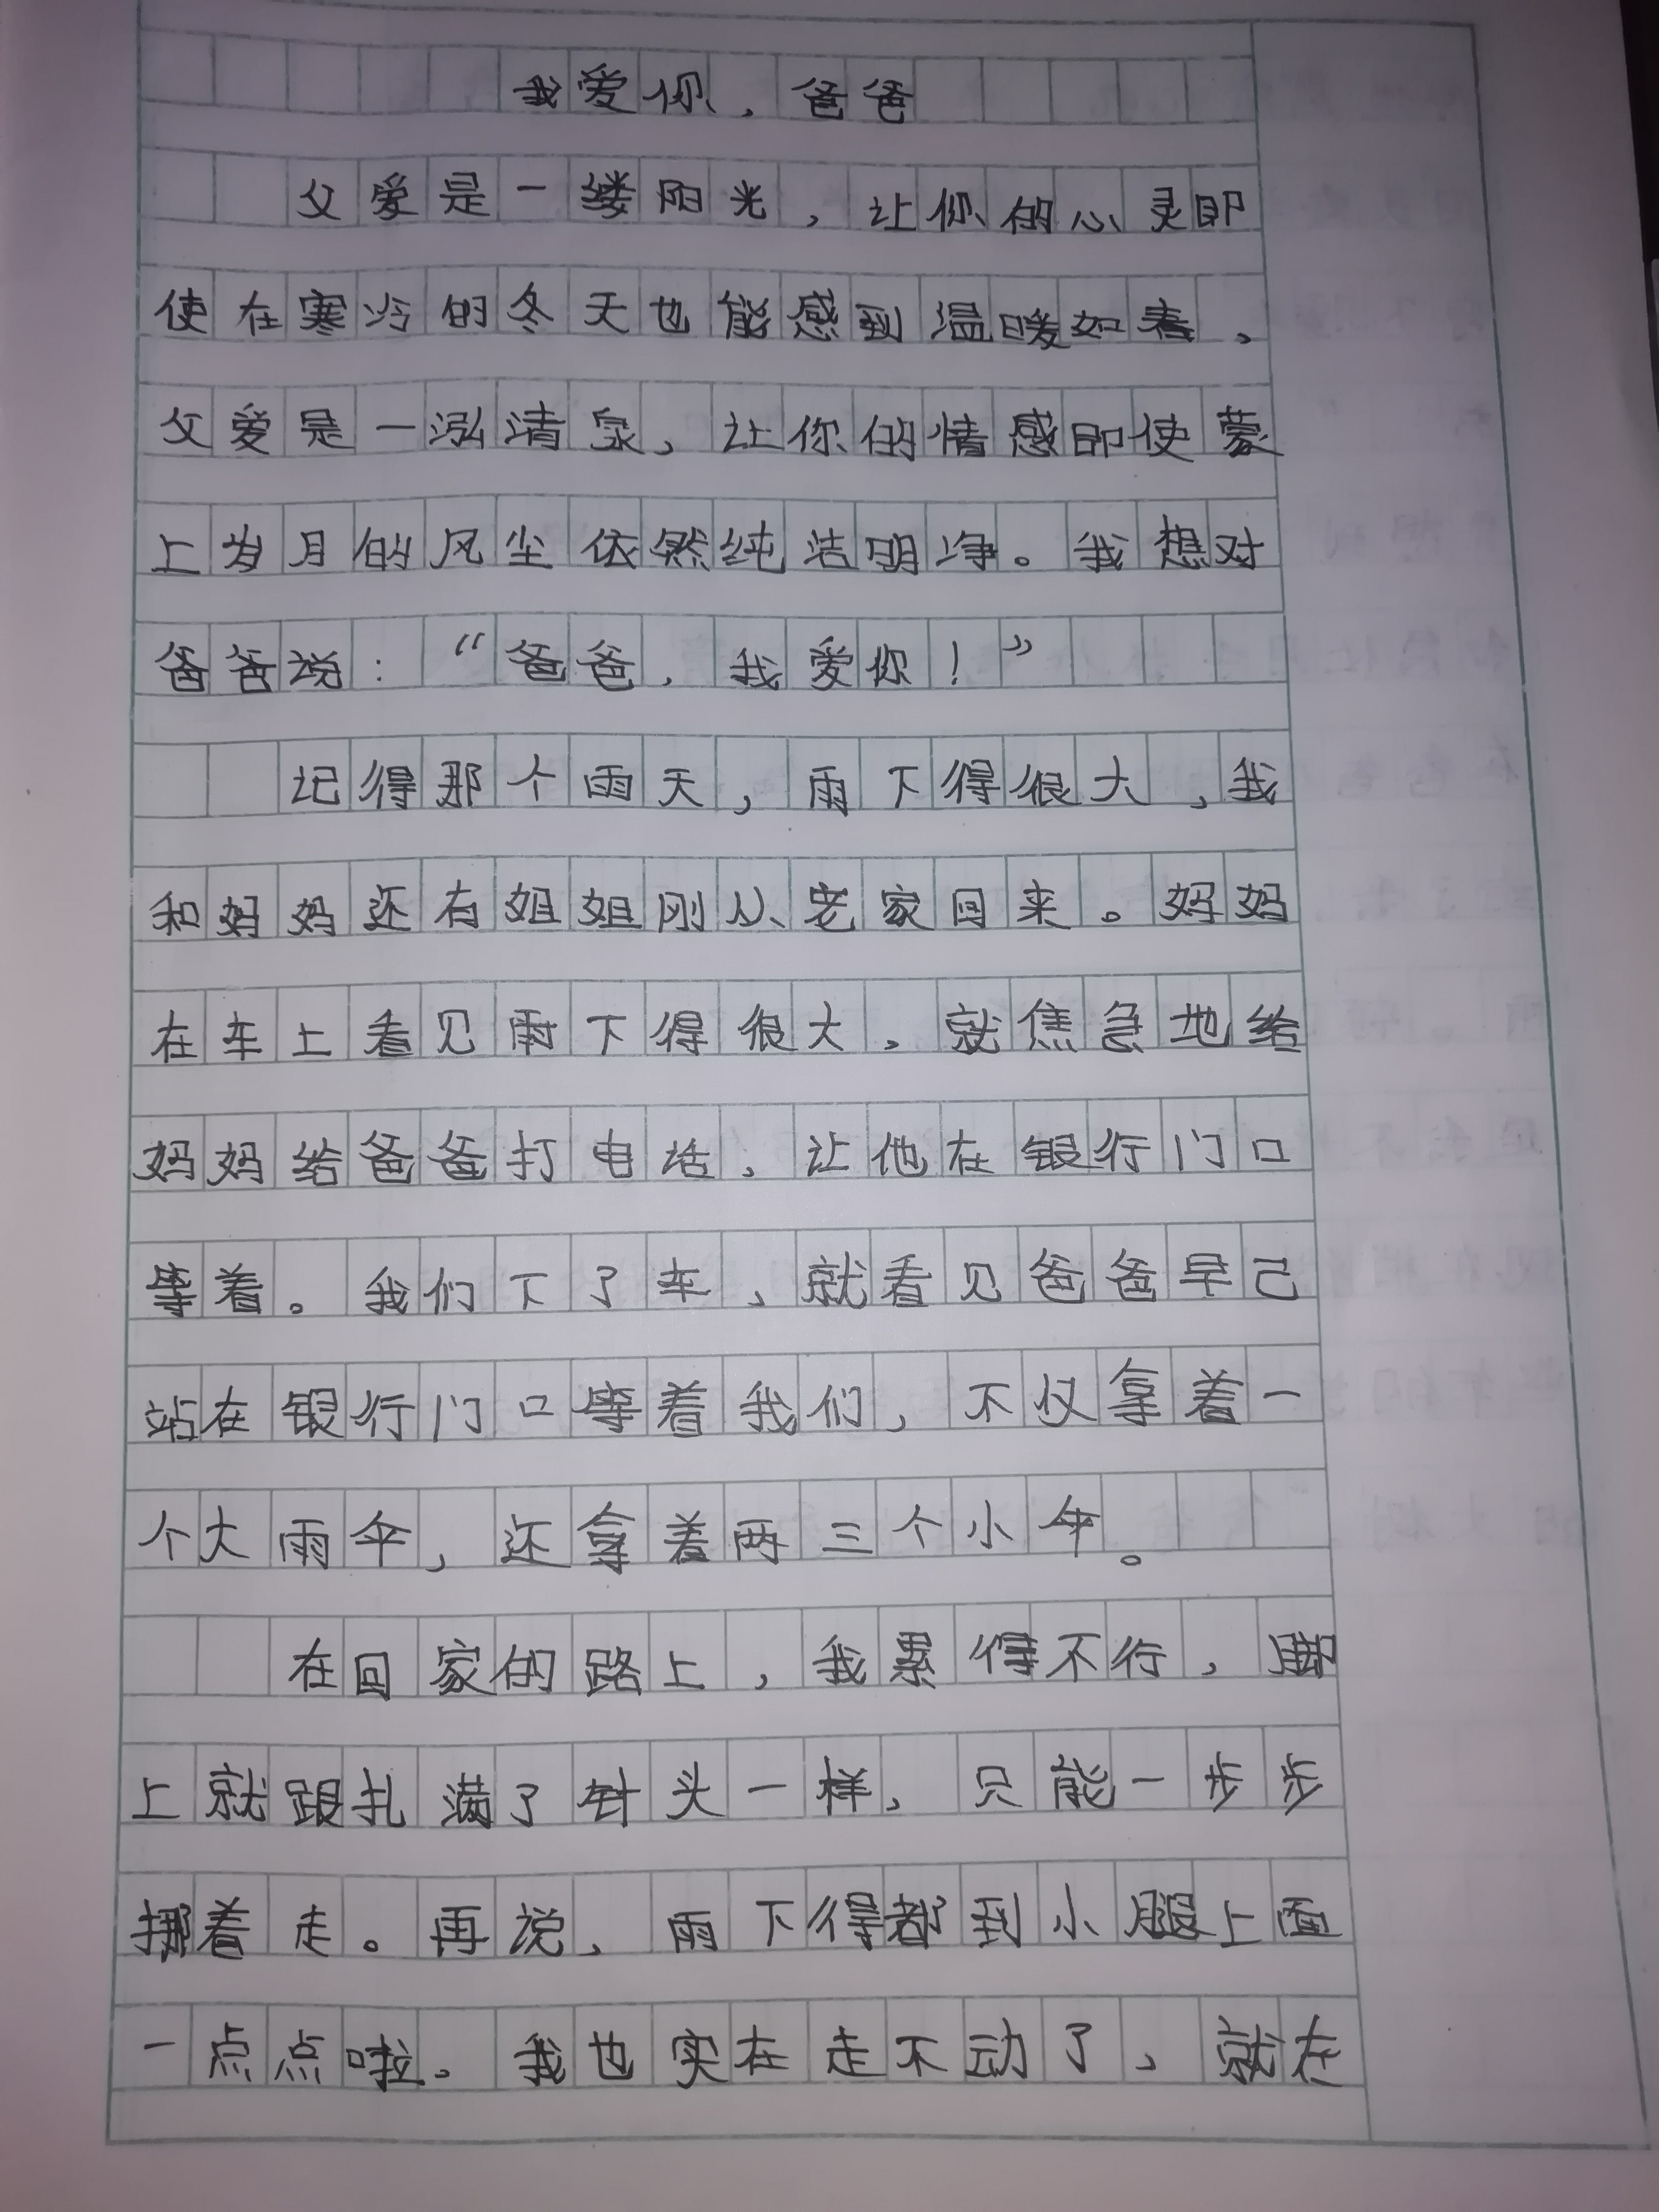 我爱你，爸爸
父爱是一缕阳光，让你的心灵即
使在寒冷的冬天也能感到温暖如春，
父爱是一泓清泉，让你的情感即使蒙
上岁月的风尘依然纯洁明净。我想对
爸爸说：“爸爸，我爱你！”
记得那个雨天，雨下得很大，我
和妈妈还有姐姐刚从老家回来。妈妈
在车上看见雨下得很大，就焦急地给
妈妈给爸爸打电话，让他在银行门口
等着。我们下了车，就看见爸爸早已
站在银行门口等着我们，不仅拿着一
个大雨伞，还拿着两三个小伞。
在回家的路上，我累得不行，脚
上就跟扎满了针头一样，只能一步步
挪着走。再说，雨下得都到小腿上面
一点点啦。我也实在走不动了，就在